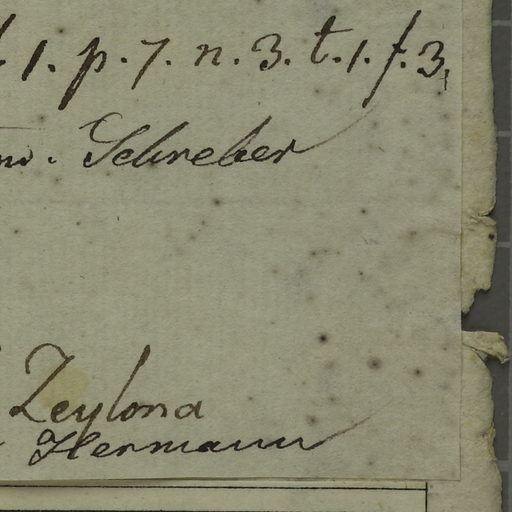 1. p. 7. n. 3. t. 1. f. 3.
Schreber
Zeylona
Hermann